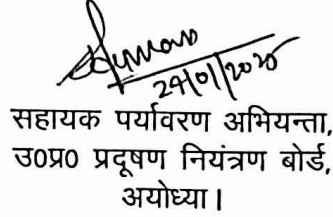 24/01/2025
सहायक पर्यावरण अभियन्ता,
उ०प्र० प्रदूषण नियंत्रण बोर्ड,
अयोध्या।